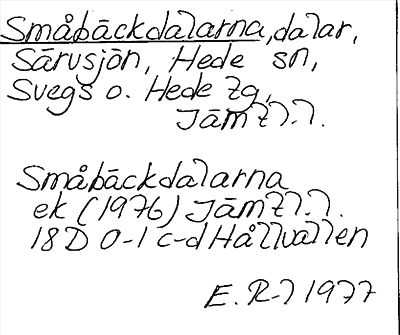 Småbäckdalarna, dalar,
Särvsjön, Hede sn,
Svegs o. Hede tg,
Jämtl.l.
Småbäckdalarna
ek (1976) Jämtl.l.
18D 0-1 c-d Hållvallen
E. R-l 1977